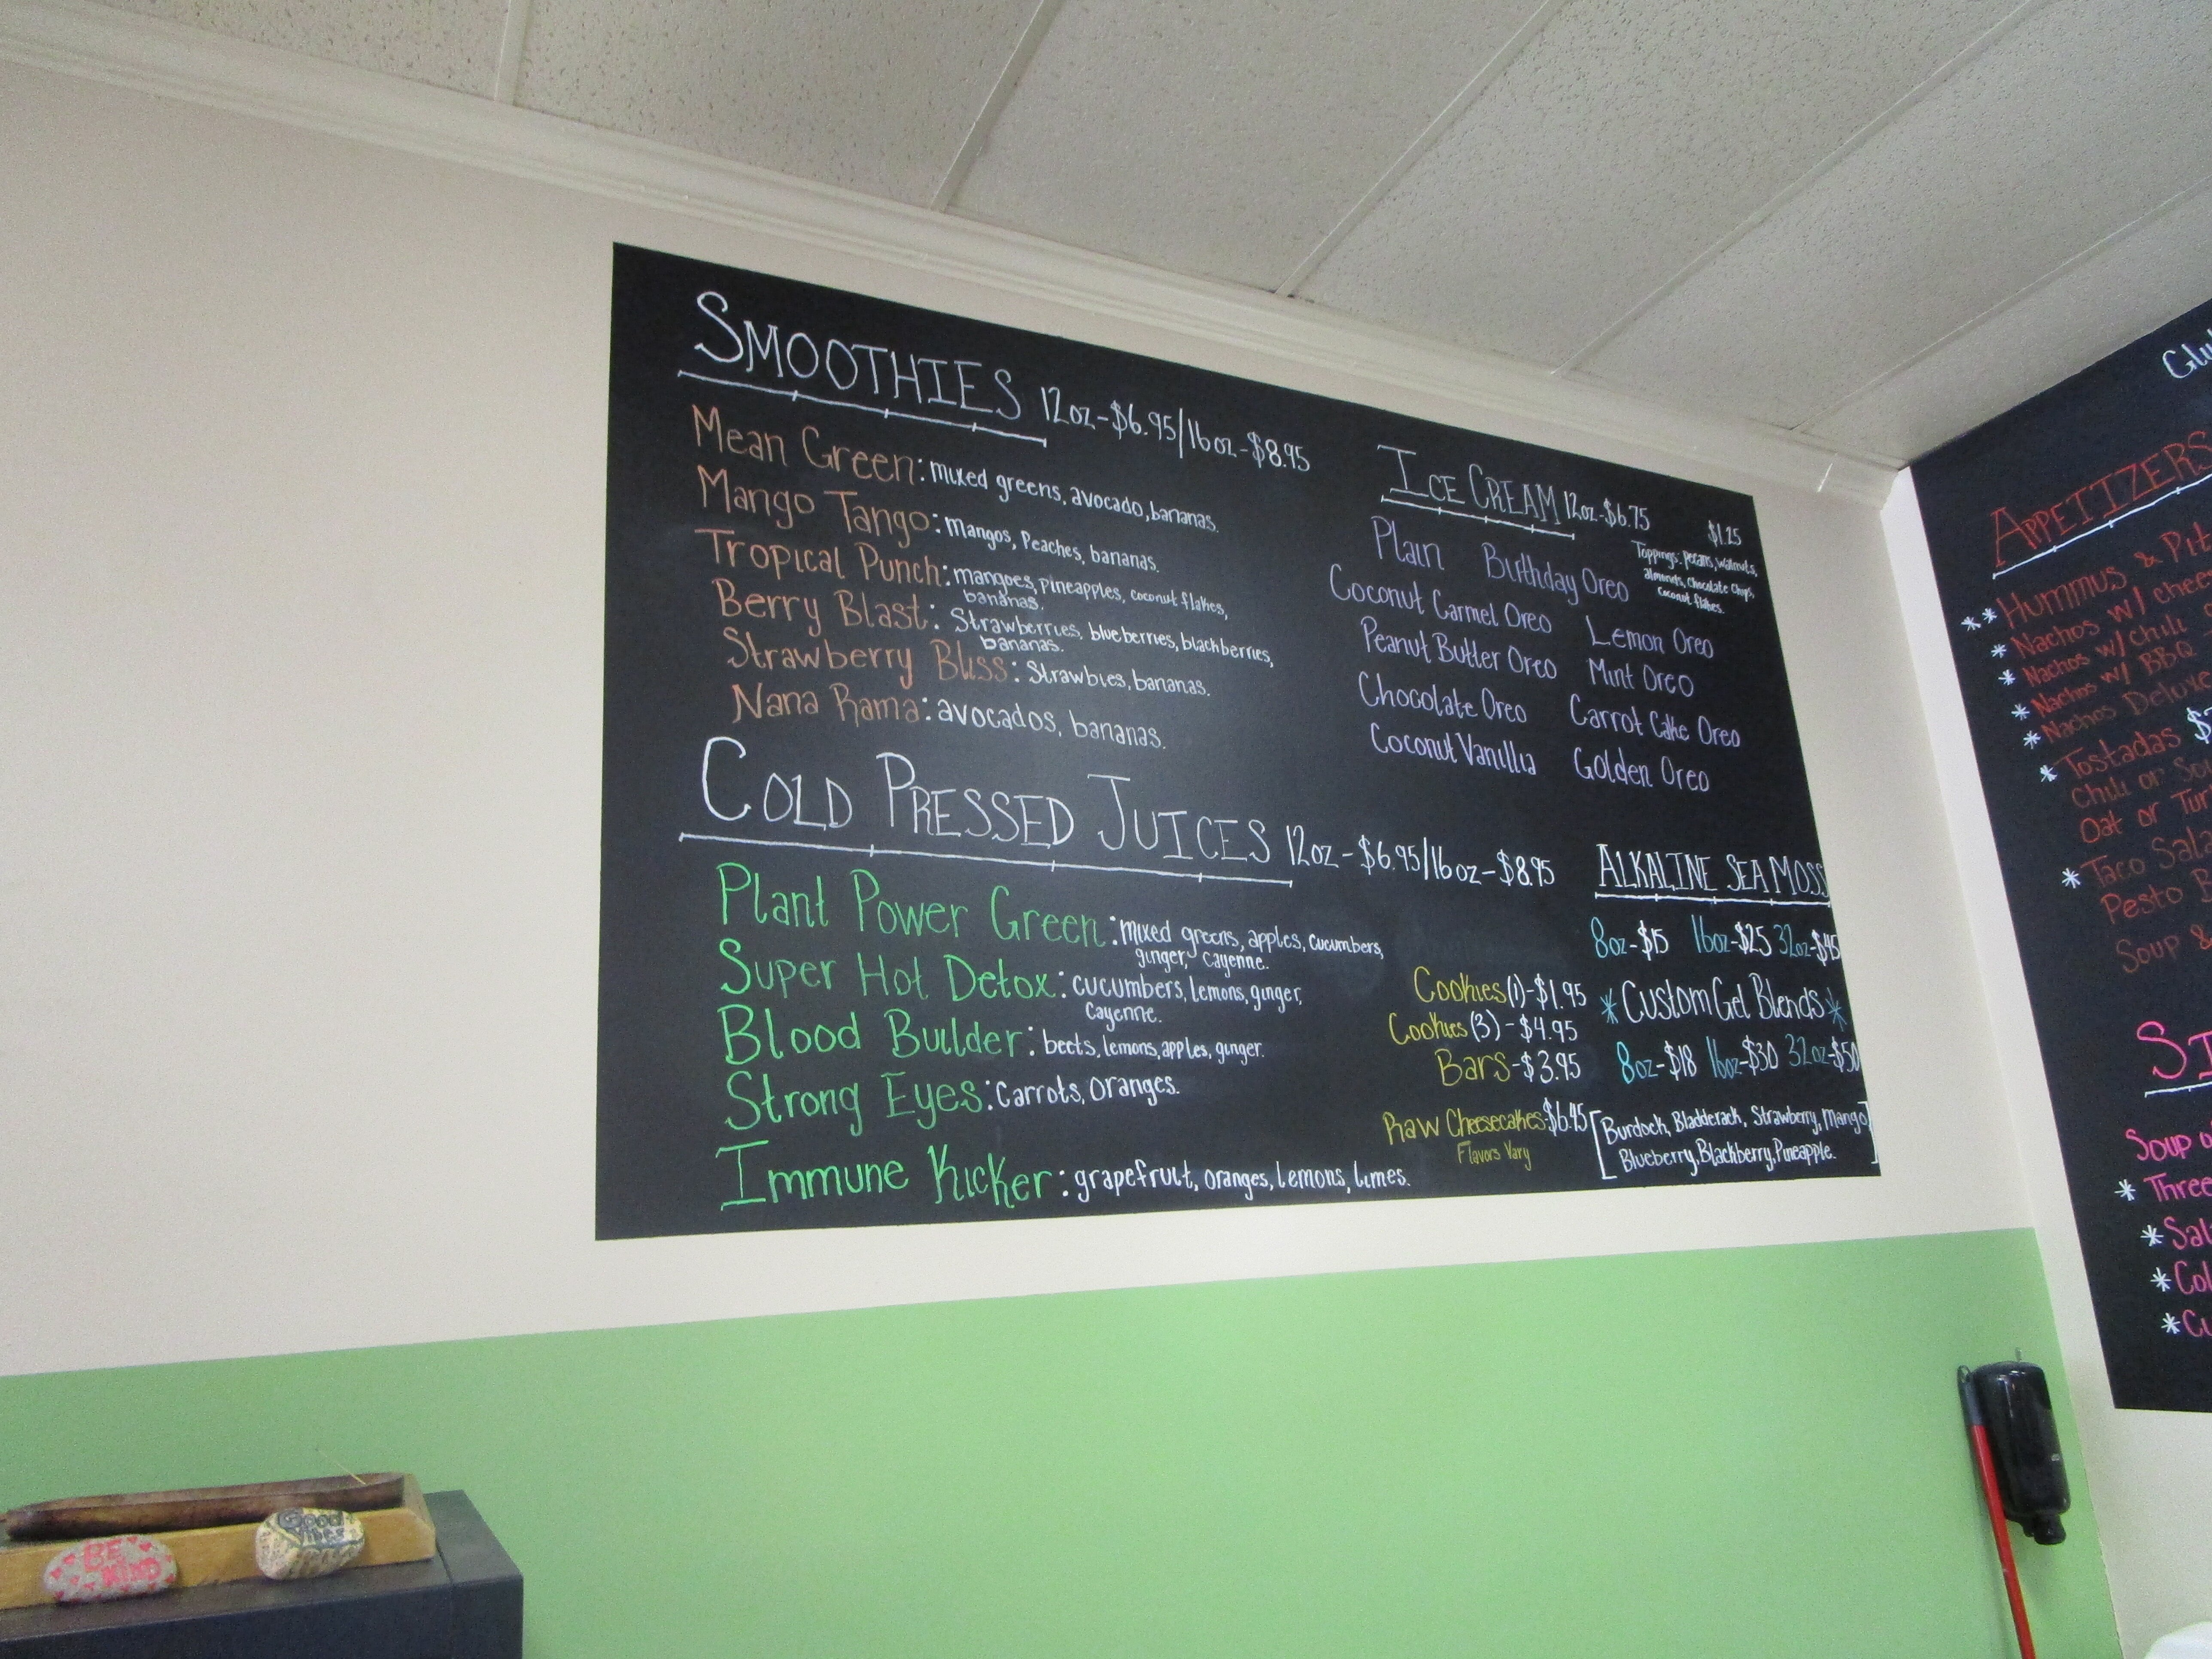 SMOOTHIES 12oz-$6.95/16oz-$8.95
Mean Green: mixed greens, avocado, bananas.
Mango Tango: mangos, Peaches, bananas.
Tropical Punch: mangoes, pineapples, coconut flakes,
bananas.
Berry Blast: Strawberries, blueberries, blackberries,
bananas.
Strawberry Bliss: Strawbies, bananas.
Nana Rama: avocados, bananas.
COLD PRESSED JUICES 12oz-$6.95/16oz-$8.95
Plant Power Green: mixed greens, apples, cucumbers,
ginger, cayenne.
Super Hot Detox: cucumbers, lemons, ginger,
Cayenne.
Blood Builder: beets, lemons, apples, ginger.
Strong Eyes: Carrots, oranges.
Immune Kicker: grapefruit, oranges, lemons, limes.
ICE CREAM 12oz-$6.75
$1.25
Toppings: pecans, walnuts,
almonds, Chocolate Chips,
Coconut flakes.
Plain Birthday Oreo
Coconut Carmel Oreo Lemon Oreo
Peanut Butter Oreo Mint Oreo
Chocolate Oreo Carrot Cake Oreo
Coconut Vanillia Golden Oreo
Cookies (1)-$1.95
Cookies (3)-$4.95
Bars-$3.95
Raw Cheesecakes-$6.45
Flavors Vary
ALKALINE SEA MOSS
8oz-$15 16oz-$25 32oz-$45
*Custom Gel Blends*
8oz-$18 16oz-$30 32oz-$50
[Burdock, Bladderack, Strawberry, Mango
Blueberry, Blackberry, Pineapple.]
APPETIZERS
**Hummus & Pit
*Nachos w/ chees
*Nachos w/ chili
*Nachos w/ BBQ
*Nachos Deluxe
*Tostadas
Chili or Sou
Oat or Tur
*Taco Sala
Pesto B
Soup &
SI
Soup o
*Three
*Sal
*Col
*Cu
BE
KIND
Good
Vibes